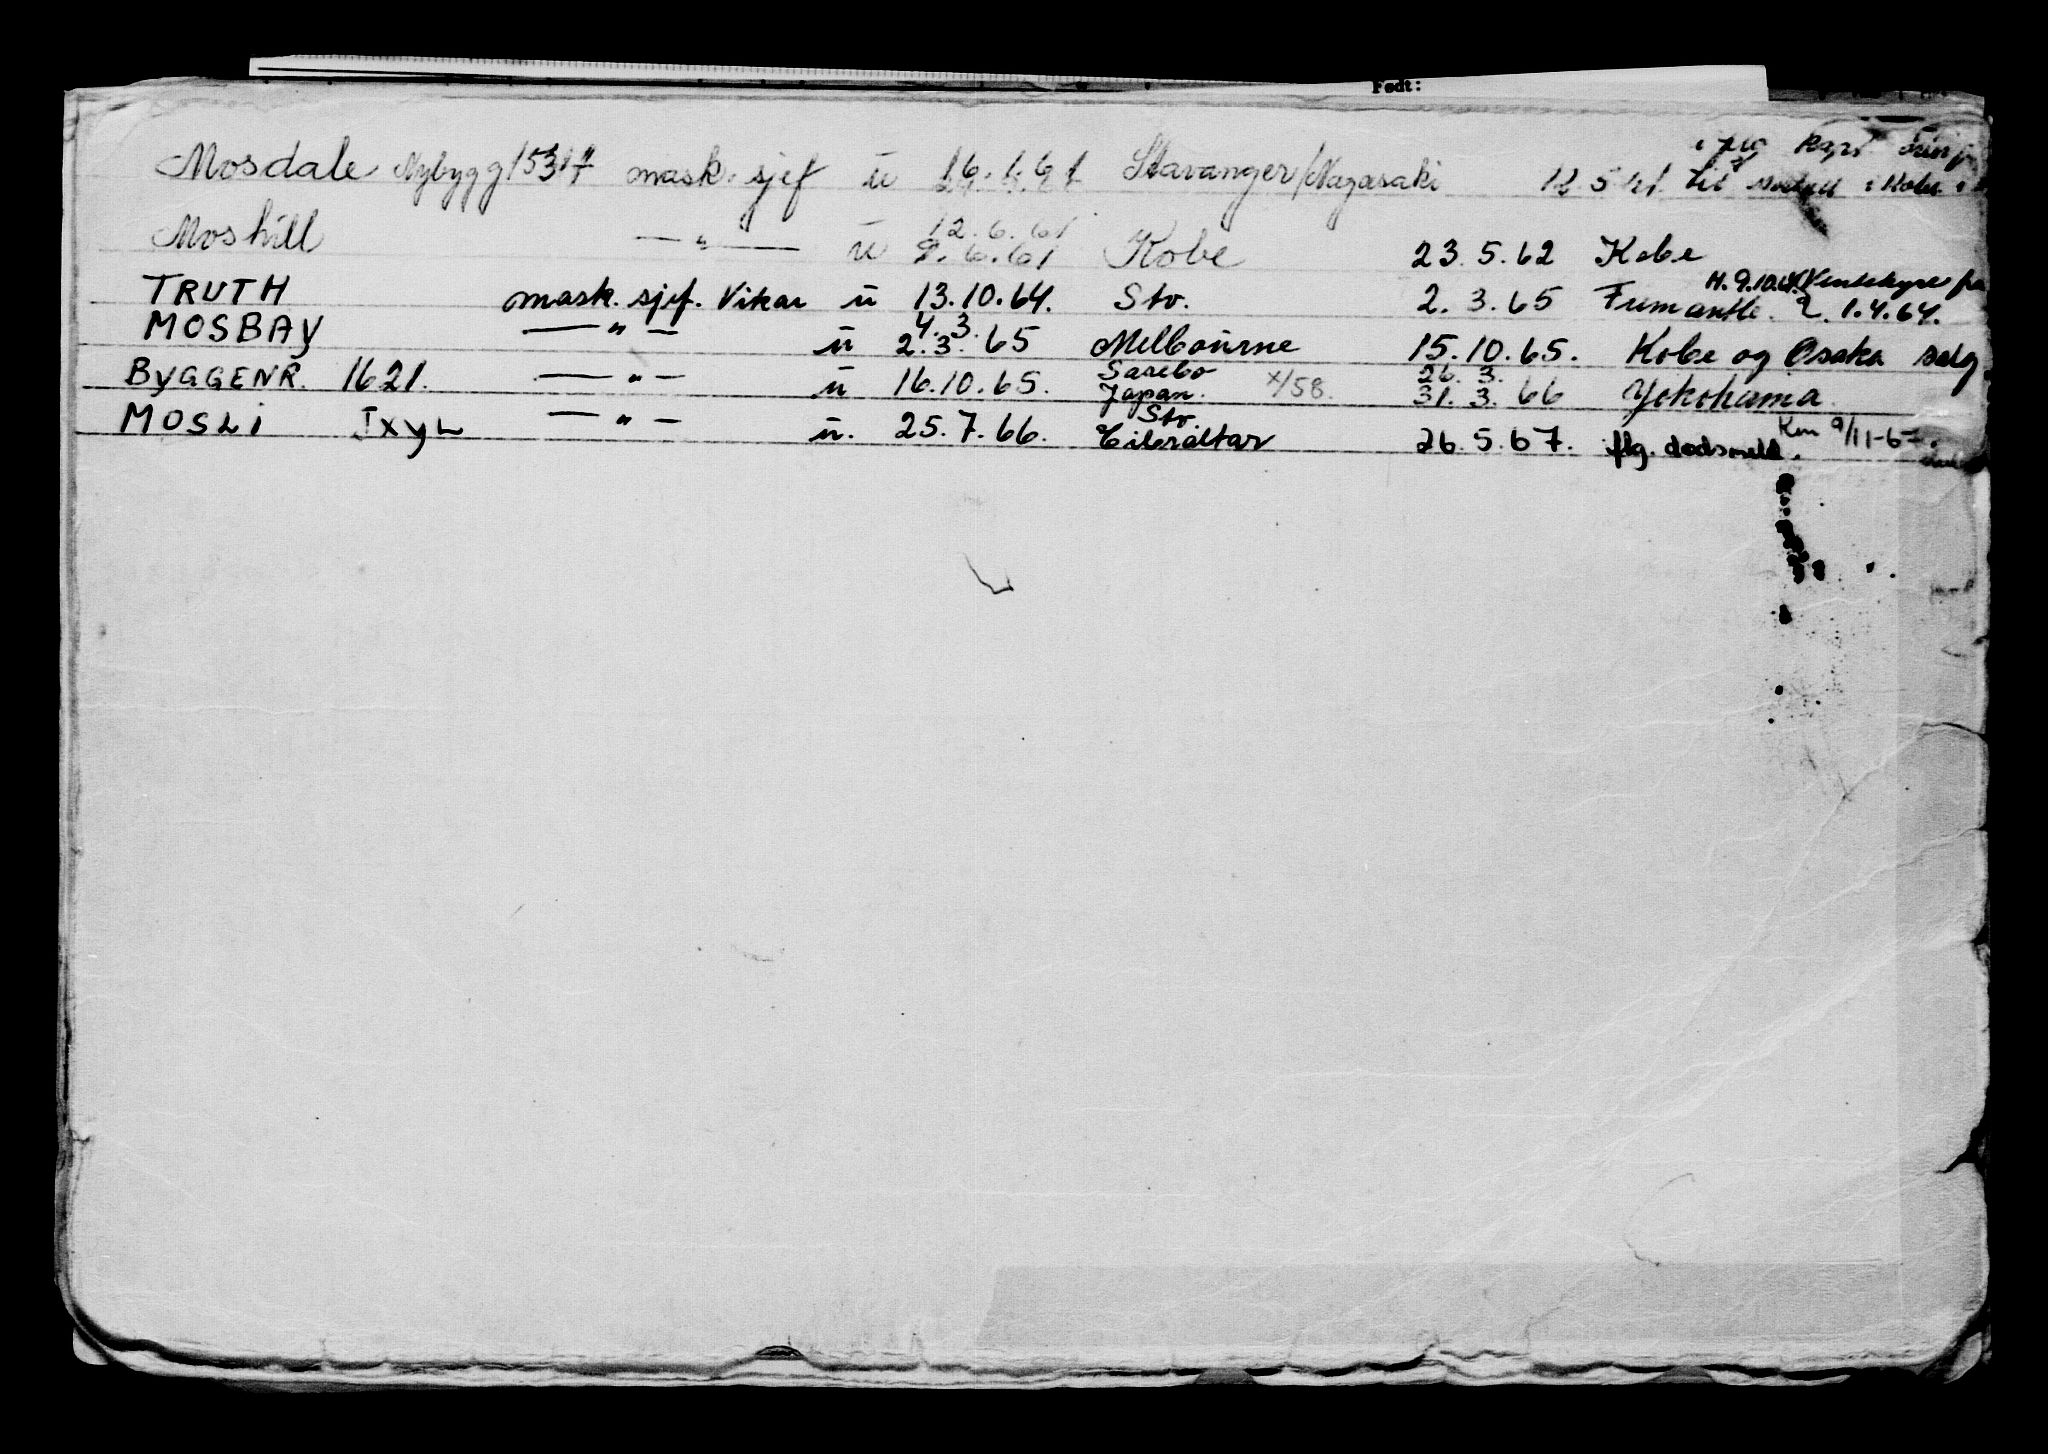 Født:
Mosdale Nybygg 1531 mask. sjef u 16.1.61 Stavanger/Nagasaki 12.5.61 til i Kobe
12.6.61
Moshill — " — u 9.6.61 Kobe 23.5.62 Kobe
H. 9.10.64
TRUTH mask. sjef. Vikar u 13.10.64. Stv. 2.3.65 Fremantle. 1.4.64.
4.3.
MOSBAY — " — u 2.3.65 Melbourne 15.10.65. Kobe og Osaka salg
Sasebo 26.3.
BYGGENR. 1621. — " — u 16.10.65. Japan. x/58. 31.3.66 Yokohama
Stv.
MOSLI JXYL — " — u. 25.7.66. Gibraltar 26.5.67. flg. dødsmeld.